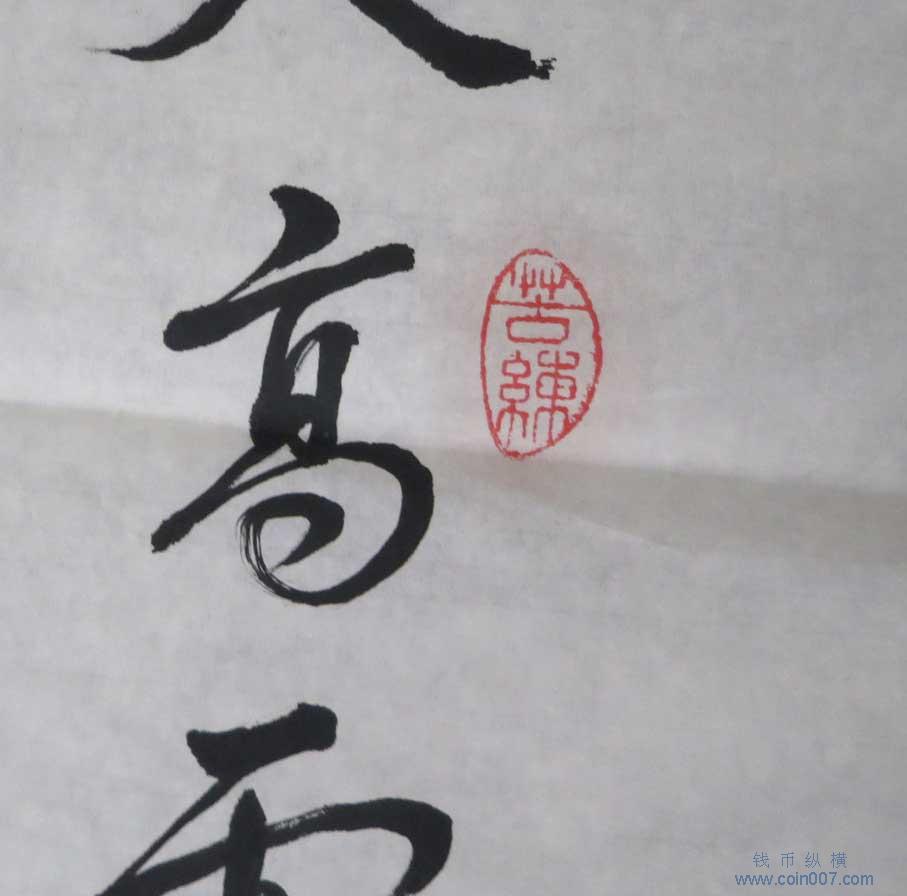 高
苦練
钱币纵横
www.coin007.com